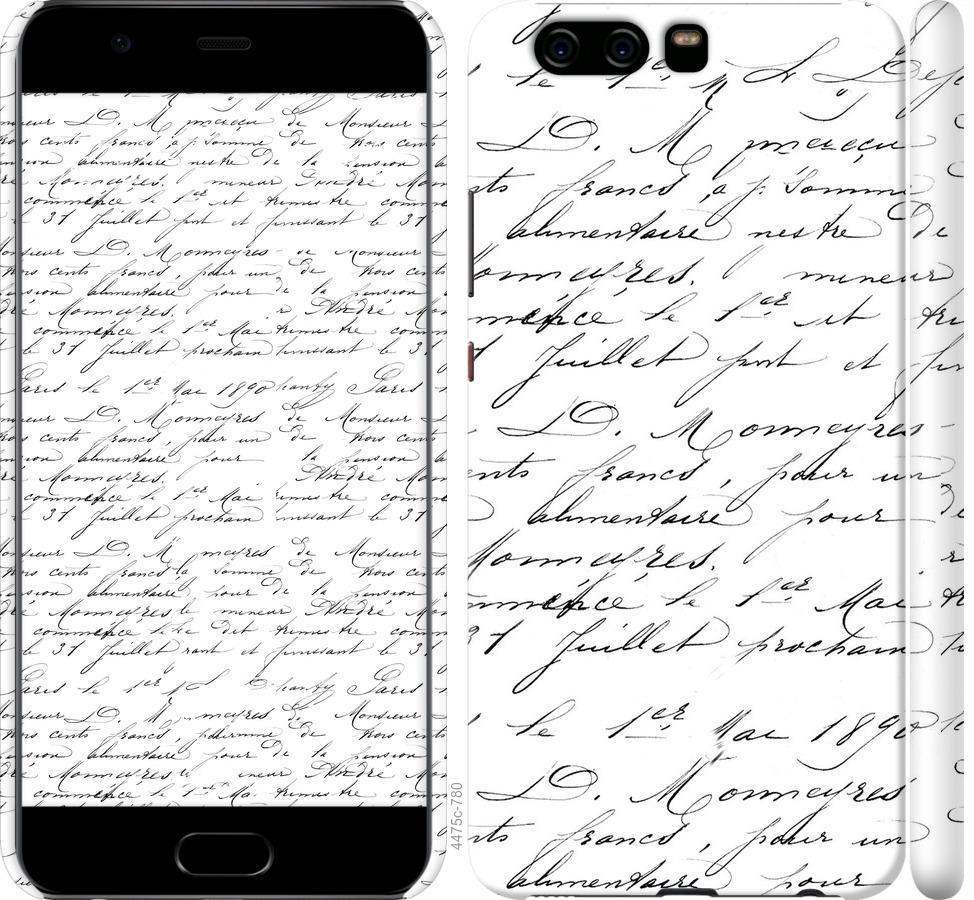 Paris le 1er Paris
Monsieur D. M de Monsieur D.
cents francs, à p. Somme de trois cents
alimentaire nestre De la pension
Monmeyres. mineur André Mon
commence le 1er et trimestre comm
le 31 Juillet port et finissant le 31
Monsieur D. Monmeyres de Monsieur D.
trois cents francs, pour un De trois cents
pension alimentaire pour De la pension
Monmeyres. André Mon
commence le 1er Mai trimestre comm
le 31 Juillet prochain finissant le 31
Paris le 1er Mai 1890 Paris
Monsieur D. Monmeyres de Monsieur
cents francs, pour un De trois cents
alimentaire pour la pension
Monmeyres. André Mon
commence le 1er Mai trimestre comm
31 Juillet prochain finissant le 31
Monsieur D. M meyres de Monsieur
trois cents francs la Somme de trois cents
pension alimentaire pour De la pension
André Monmeyres le mineur André Mon
commence le dit trimestre comm
le 31 Juillet et finissant le 31
Paris le 1er Paris
Monsieur D. M meyres de Monsieur
cents francs, De trois cents
pension alimentaire pour De la pension
Monmeyres ineur André Mon
commence le 1er Ma. trimestre comm
4475c-780
le 1er
D. M
nts francs, à p. Somme
alimentaire nestre de
onmeyres. mineur
mmence le 1er et tri
1 Juillet port et fin
D. Monmeyres -
ents francs, pour un
alimentaire pour De
Monmeyres. r
mmence le 1er Mai tr
31 Juillet prochain
le 1er Mai 1890
D. Monmeyres
nts francs, pour un
alimentaire pour